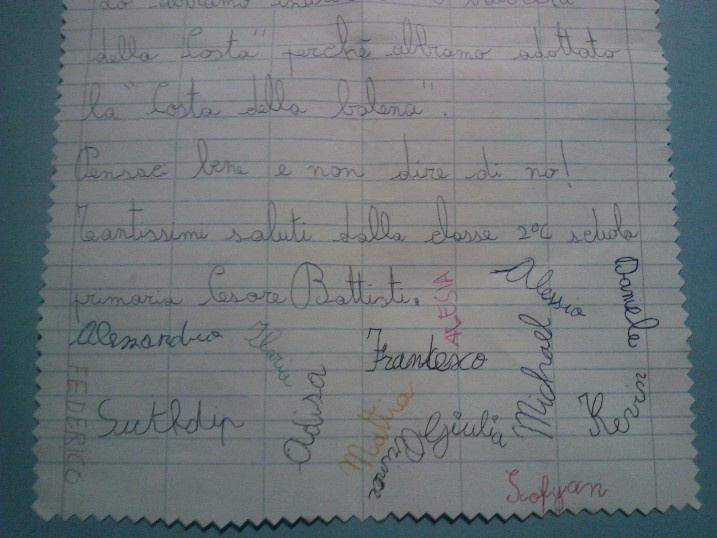 della Costa" perché abbiamo adottato
la "Costa della balena".
Pensaci bene e non dire di no!
Tantissimi saluti dalla classe 2°C scuola
primaria Cesare Battisti.
ALESSIA
Alessia
Daniele
Alexandra
Ilaria
Francesco
Michael
FEDERICO
Sukhdip
Adisa
Mattia
Giulia
Kevin
Sofyan